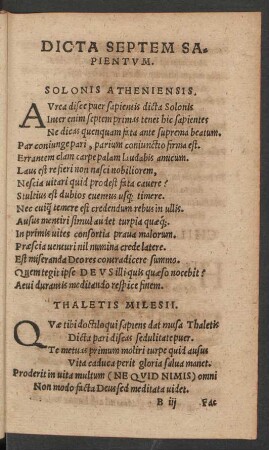 DICTA SEPTEM SA-
PIENTVM.
SOLONIS ATHENIENSIS.
AVrea disce puer sapientis dicta Solonis
Inter enim septem primus tenet hic sapientes
Ne dicas quenquam fata ante suprema beatum.
Par coniunge pari, parium coniunctio firma est.
Errantem clam carpe palam laudabis amicum.
Laus est re fieri non nasci nobiliorem,
Nescia uitari quid prodest fata cauere?
Stulcius est dubios euentus usq; timere.
Nec cuiq; temere est credendum rebus in ullis.
Ausus mentiri simul audet turpia quæq;.
In primis uites consortia praua malorum.
Præscia uenturi nil numina crede latere.
Est miseranda Deo res contradicere summo.
Quem tegit ipse DEVS illi quis quæso nocebit?
Aeui duramis meditando respice finem.
THALETIS MILESII.
QVæ tibi doctiloqui sapiens dat musa Thaletis
Dicta pari discas sedulitate puer.
Te metuas primum moliri turpe quid ausus
Vita caduca perit gloria salua manet.
Proderit in uita multum (NE QVID NIMIS) omni
Non modo facta Deus sed meditata uidet.
B iij Fac